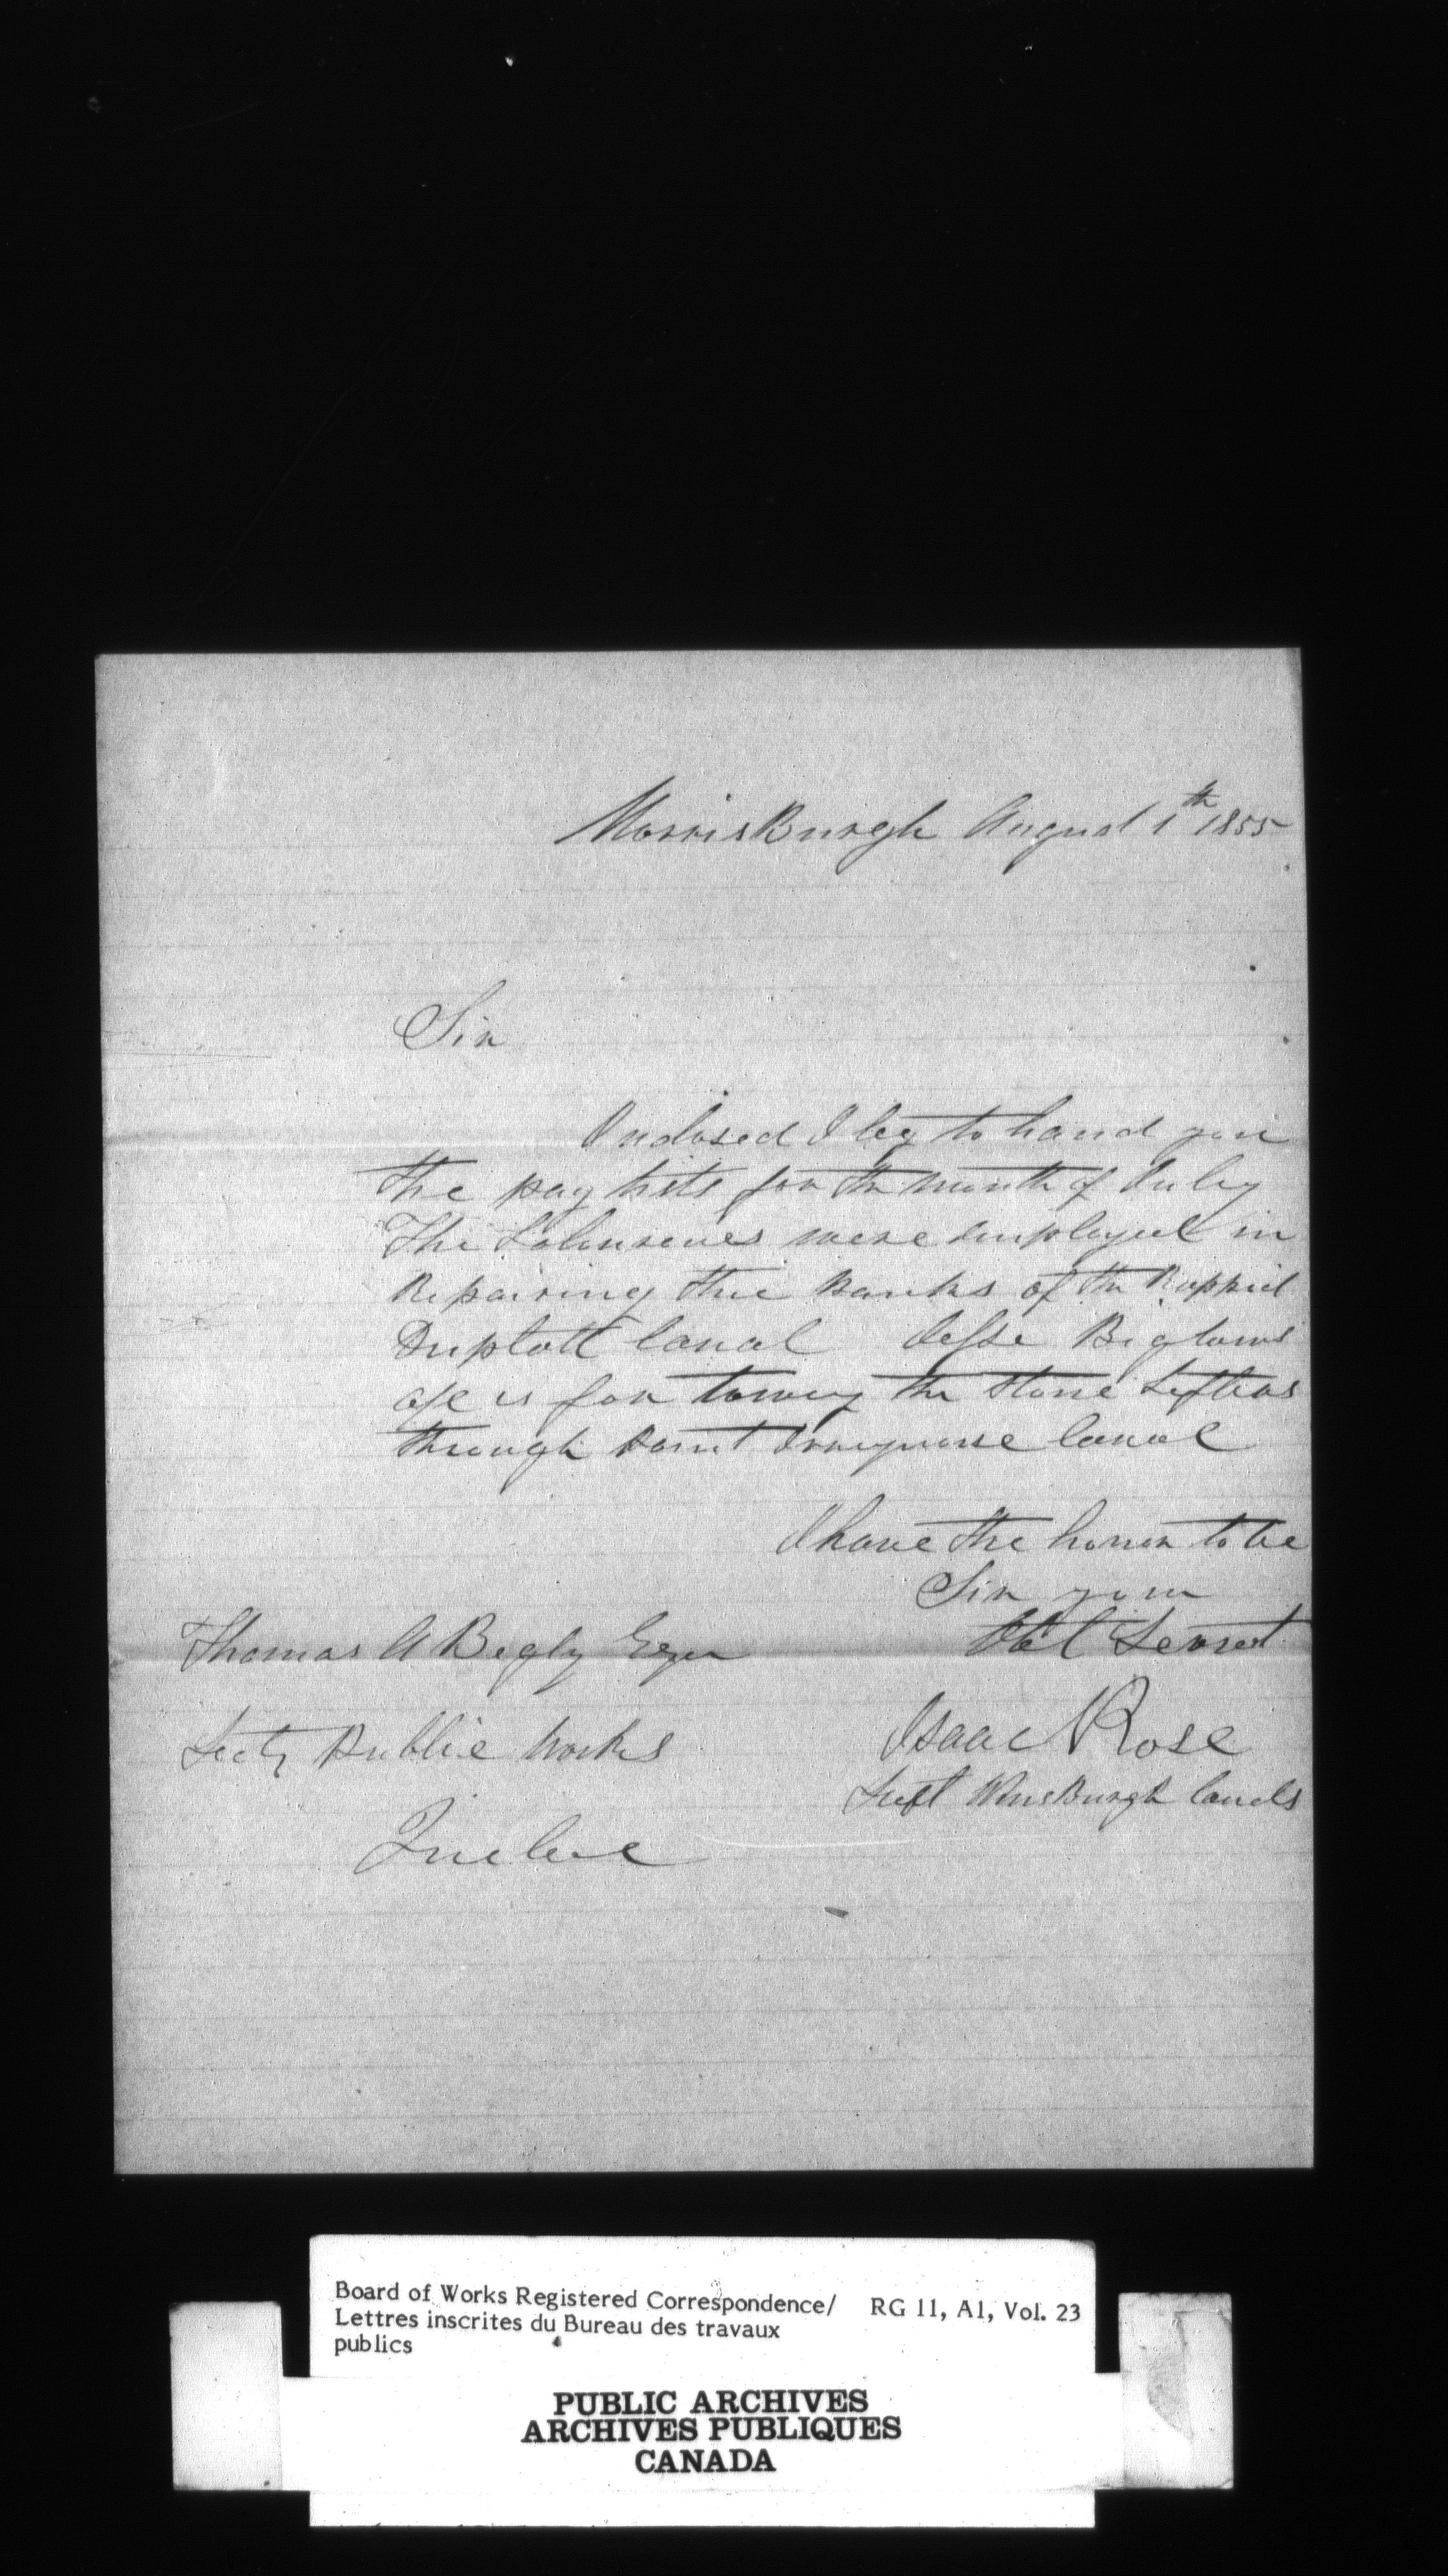 MorrisBurgh August 1th 1855
Sir
Inclosed I beg to hand you
the pay lists for the month of July
The Labourers were employed in
Repairing the Banks of the Rappid
Duplatt Canal Jesse Biglows
a/c is for towing the Stone Lifters
through Point Iroquoise Canal
I have the honor to be
Sir your
Obt Servt
Thomas A Begly Esqr
Isaac N Rose
Secty Public Works
Supt WmsBurgh Canals
Quebec
Board of Works Registered Correspondence/ RG 11, A1, Vol. 23
Lettres inscrites du Bureau des travaux
publics
PUBLIC ARCHIVES
ARCHIVES PUBLIQUES
CANADA